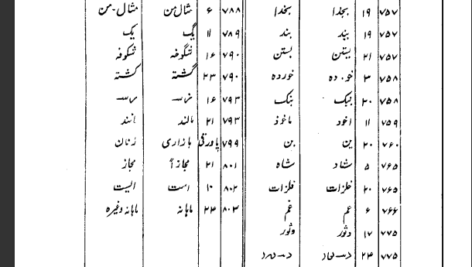 ۷۵۷ ۱۹ بجذا بخدا ۷۸۸ ۶ مثال من مثال-من
۷۵۷ ۱۹ بند ۷۸۹ ۱۱ یگ یک
۷۵۷ ۲۱ بستن ۷۹۰ ۱۶ شگوفه شکوفه
۷۵۸ ۳ خو.ده خورده ۷۹۰ ۲۳ گشته کشته
۷۵۸ ۲۰ بنک ۷۹۳ ۱۶
۷۵۹ ۱۱ اخوذ ماخوذ ۷۹۳ ۲۱ مالند مانند
۷۶۰ ۲۰ بن بن ۷۹۹ پاورقی بازاری زنان
۷۶۵ ۵ شاد شاه ۸۰۱ ۲۱ مجازآ مجاز
۷۶۵ ۲۰ فلزات ۸۰۲ ۱۰ است الیست
۷۶۶ ۶ عم غم ۸۰۳ ۲۳ ماہانه ماہانه وغیره
۷۷۵ ۱۷ وثور وثور
۷۷۵ ۲۳